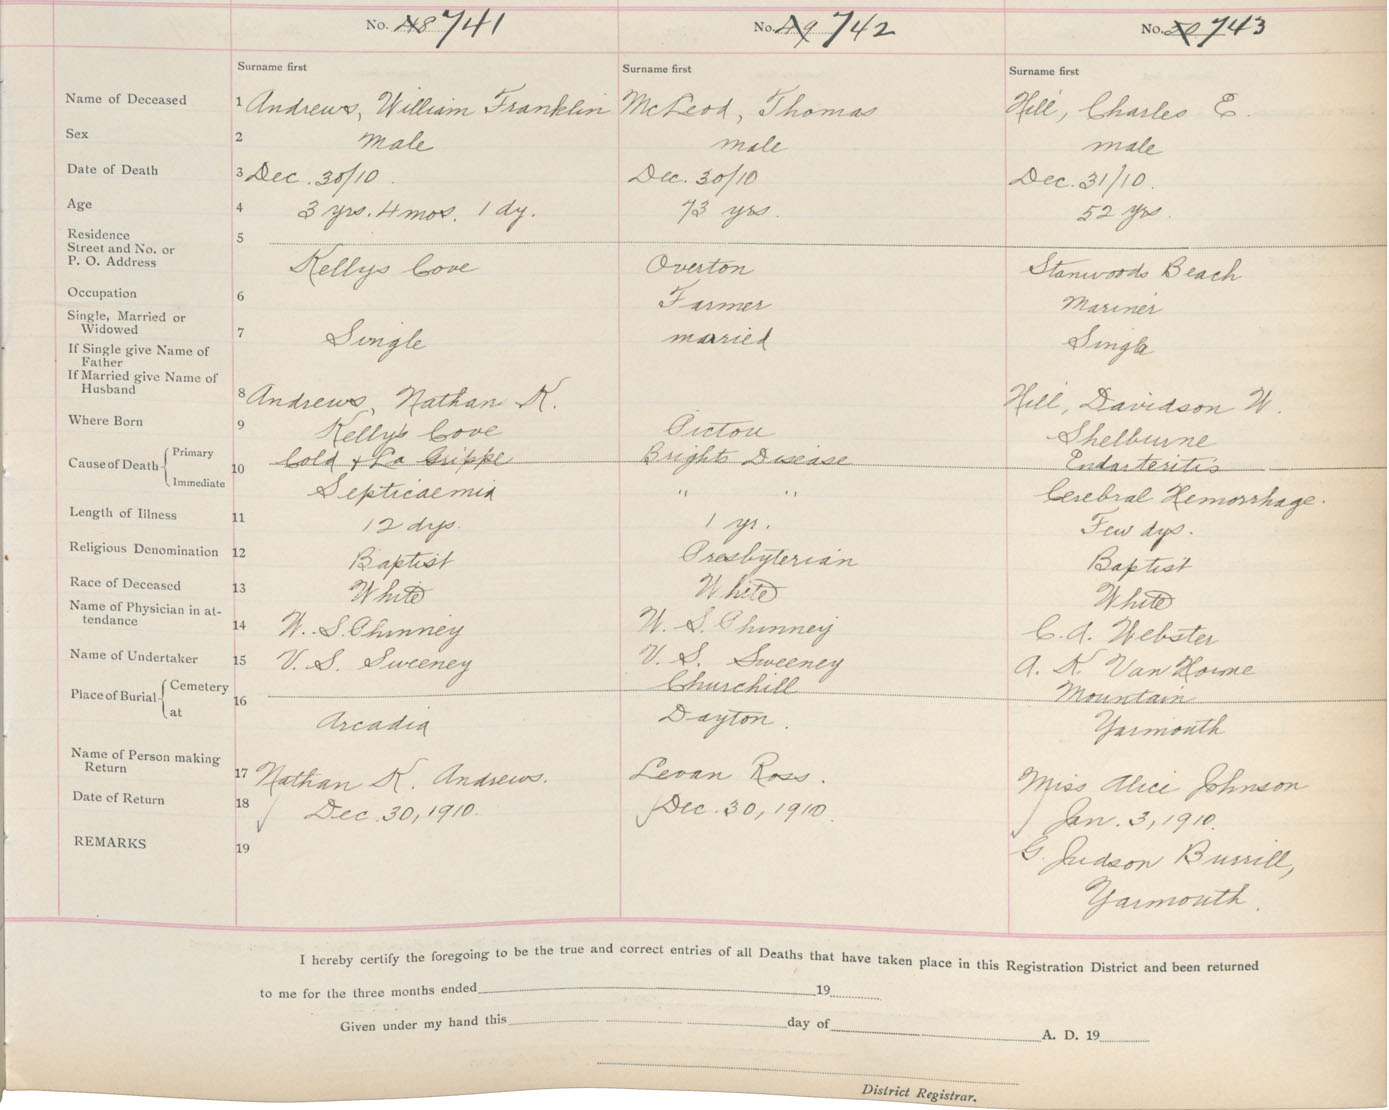 No. 48 741 No. 49 742 No. 50 743
Surname first Surname first Surname first
Name of Deceased 1 Andrews, William Franklin McLeod, Thomas Hill, Charles E.
Sex 2 male male male
Date of Death 3 Dec. 30/10. Dec. 30/10 Dec. 31/10.
Age 4 3 yrs. 4 mos. 1 dy. 73 yrs. 52 yrs.
Residence 5
Street and No. or
P. O. Address Kellys Cove Overton Stanwoods Beach
Occupation 6 Farmer Mariner
Single, Married or
Widowed 7 Single married Single
If Single give Name of
Father
If Married give Name of
Husband 8 Andrews, Nathan K. Hill, Davidson W.
Where Born 9 Kelly's Cove Pictou Shelburne
Cause of Death Primary 10 Cold & La Grippe Brights Disease Endarteritis
Immediate Septicaemia " " Cerebral Hemorrhage.
Length of Illness 11 12 dys. 1 yr. Few dys.
Religious Denomination 12 Baptist Presbyterian Baptist
Race of Deceased 13 White White White
Name of Physician in at-
tendance 14 W. S. Phinney W. S. Phinney C. A. Webster
Name of Undertaker 15 V. S. Sweeney V. S. Sweeney A. K. Van Horne
Place of Burial Cemetery 16 Churchill Mountain
at Arcadia Dayton. Yarmouth
Name of Person making
Return 17 Nathan K. Andrews. Levan Ross. Miss Alice Johnson
Date of Return 18 Dec. 30, 1910. Dec. 30, 1910. Jan. 3, 1910.
REMARKS 19 G. Judson Burrill,
Yarmouth.
I hereby certify the foregoing to be the true and correct entries of all Deaths that have taken place in this Registration District and been returned
to me for the three months ended 19
Given under my hand this day of A. D. 19
District Registrar.